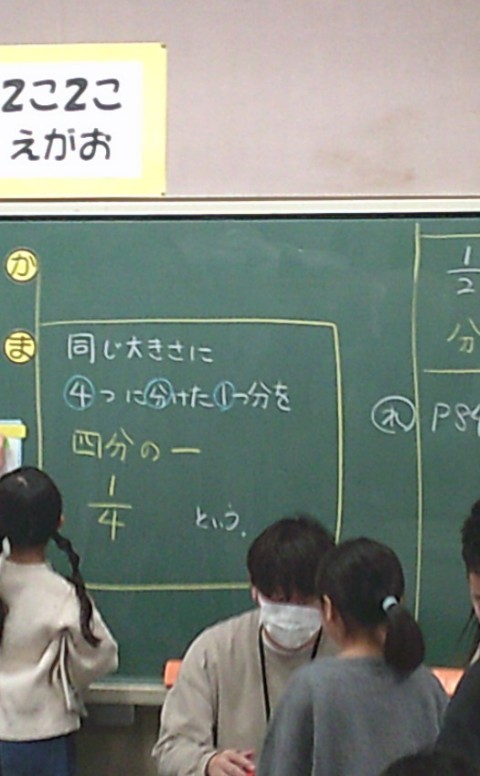 2こ2こ
えがお
か
ま
同じ大きさに
4つに分けた1つ分を
四分の一
1/4 という。
1/2
分
れ P84